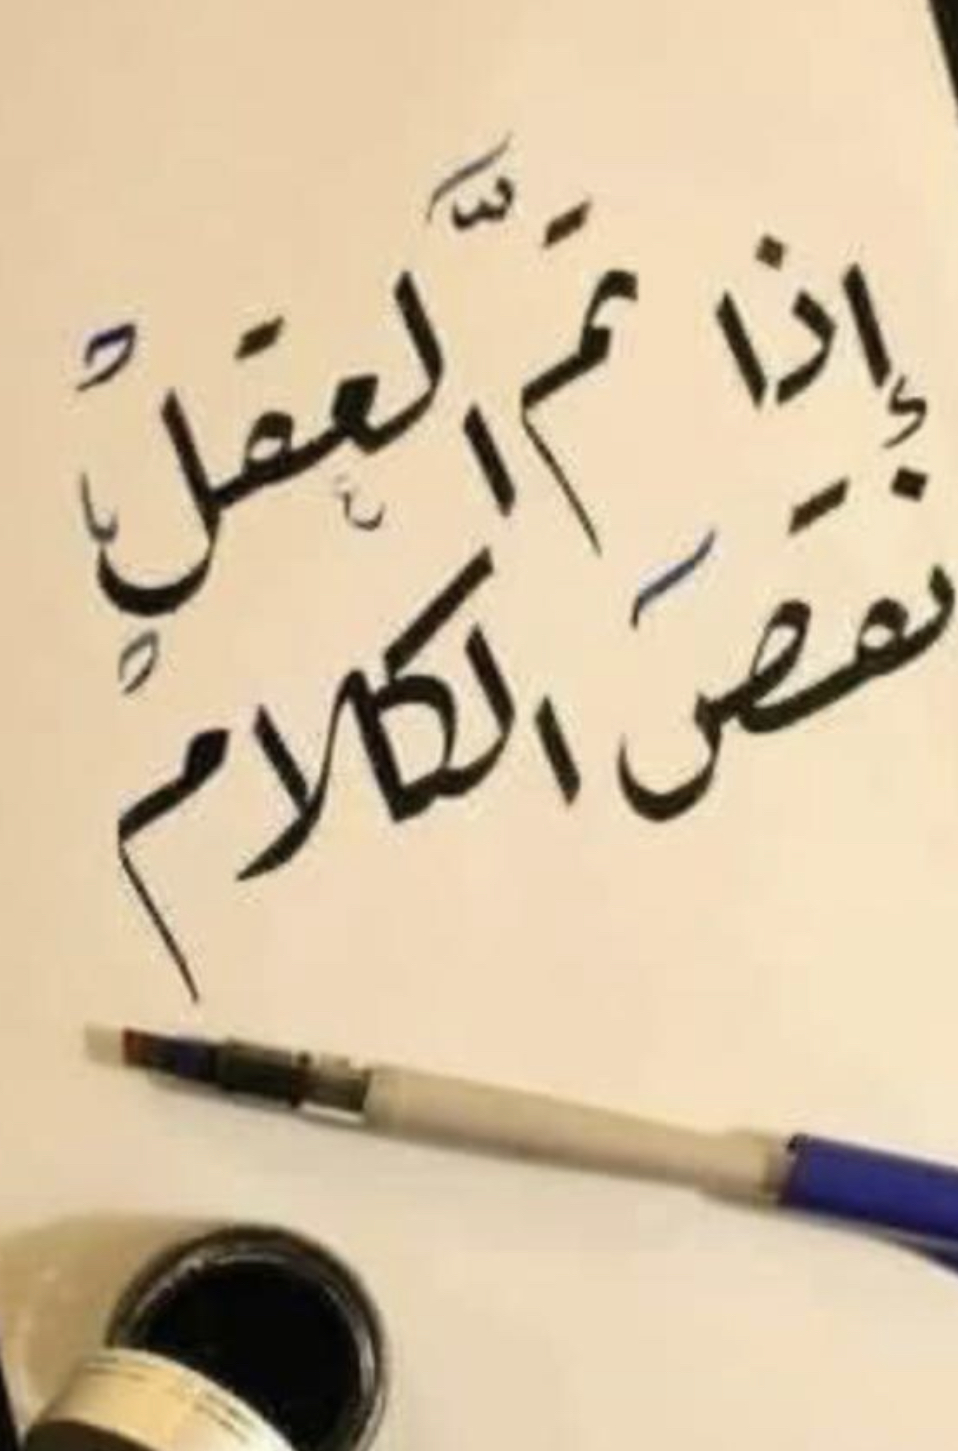 إذا تمَّ العقلُ
نقصَ الكلام